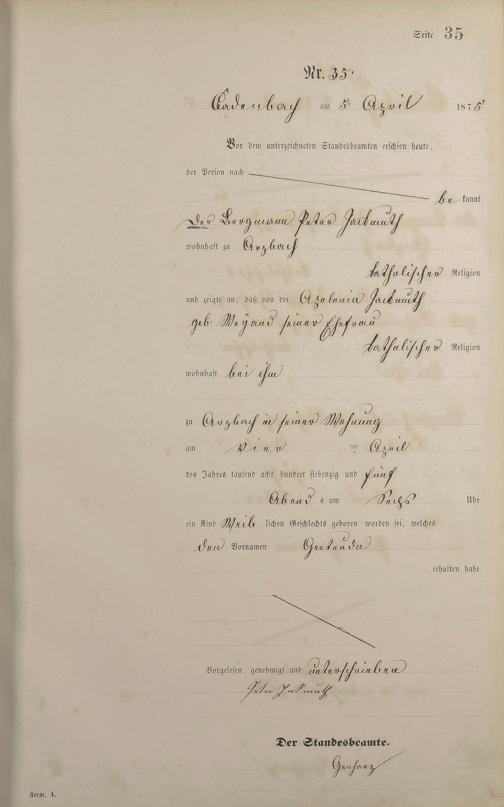 Seite 35
Nr. 35.
Cadenbach am 5ten April 1875
Vor dem unterzeichneten Standesbeamten erschien heute,
der Person nach
be kannt
der Bergmann Peter Jackmuth
wohnhaft zu Arzbach
katholischer Religion
und zeigte an, daß von der Apolonia Jackmuth
geb. Weyand seiner Ehefrau
katholischer Religion
wohnhaft bei ihm
zu Arzbach in seiner Wohnung
am vier ten April
des Jahres tausend acht hundert siebenzig und fünf
Abend s um Sechs Uhr
ein Kind Weib lichen Geschlechts geboren worden sei, welches
den Vornamen Gertruda
erhalten habe
Vorgelesen, genehmigt und unterschrieben
Peter Jakmuth
Der Standesbeamte.
Gerharz
Form. A.